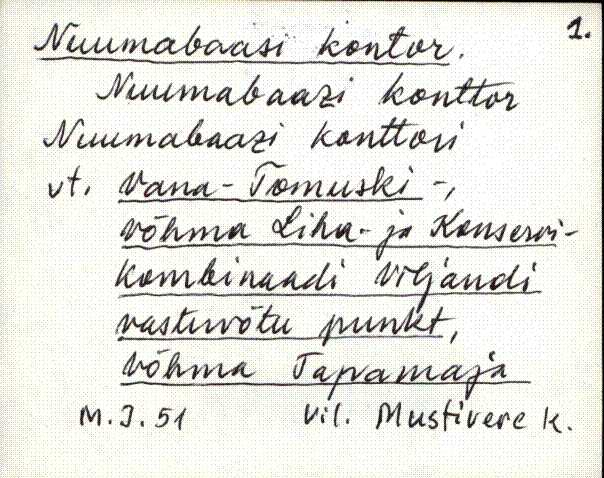 1.
Nuumabaasi kontor.
Nuumabaazi konttor
Nuumabaazi konttori
vt. Vana-Tomuski-,
Võhma Liha- ja Konservi-
kombinaadi Viljandi
vastuvõtu punkt,
Võhma Tapamaja
M.J. 51 Vil. Mustivere k.